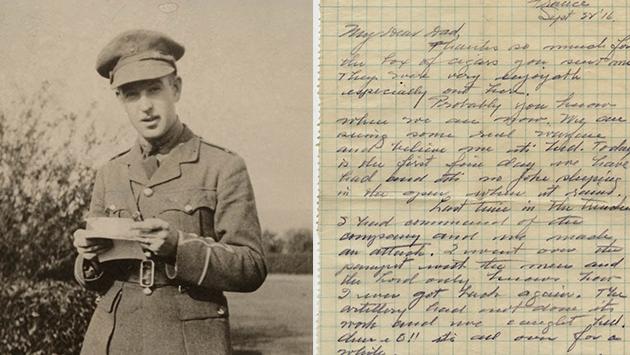 France
Sept 22'16
My Dear Dad,
Thanks so much for
the box of cigars you sent me
They were very enjoyable
especially out here.
Probably you know
where we are now. We are
seeing some real warfare
and believe me it's hell. Today
is the first fine day we have
had and it's no joke sleeping
in the open when it rains.
Last time in the trenches
I had command of the
company and we made
an attack. I went over the
parapet with the men and
the Lord only knows how
I ever got back again. The
artillery had not done its
work and we caught hell.
it's all over for a
while